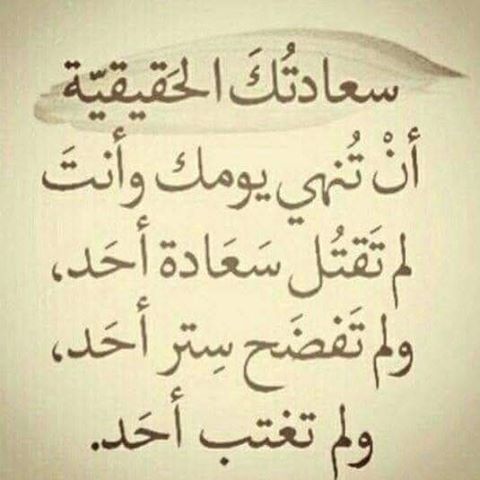 سعادتُكَ الحَقيقيّة
أنْ تُنهي يومك وأنتَ
لم تَقتُل سَعَادة أحَد،
ولم تَفضَح سِتر أحَد،
ولم تغتب أحَد.